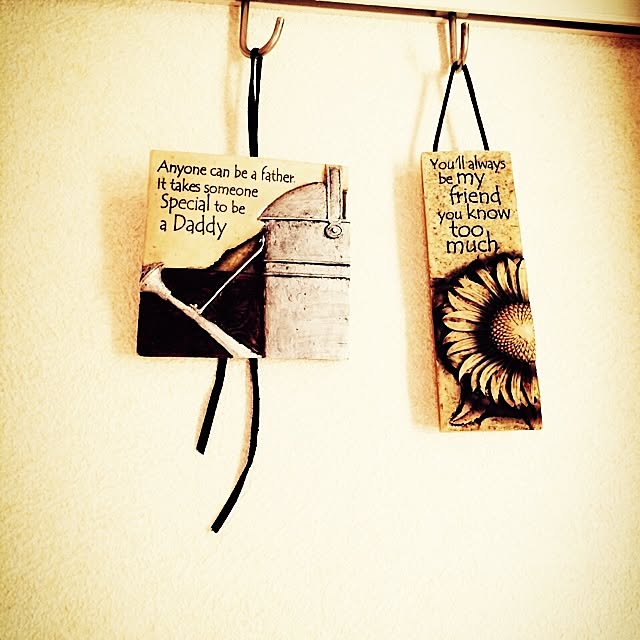 Anyone can be a father.
It takes someone
Special to be
a Daddy
You'll always
be my
friend
you know
too
much